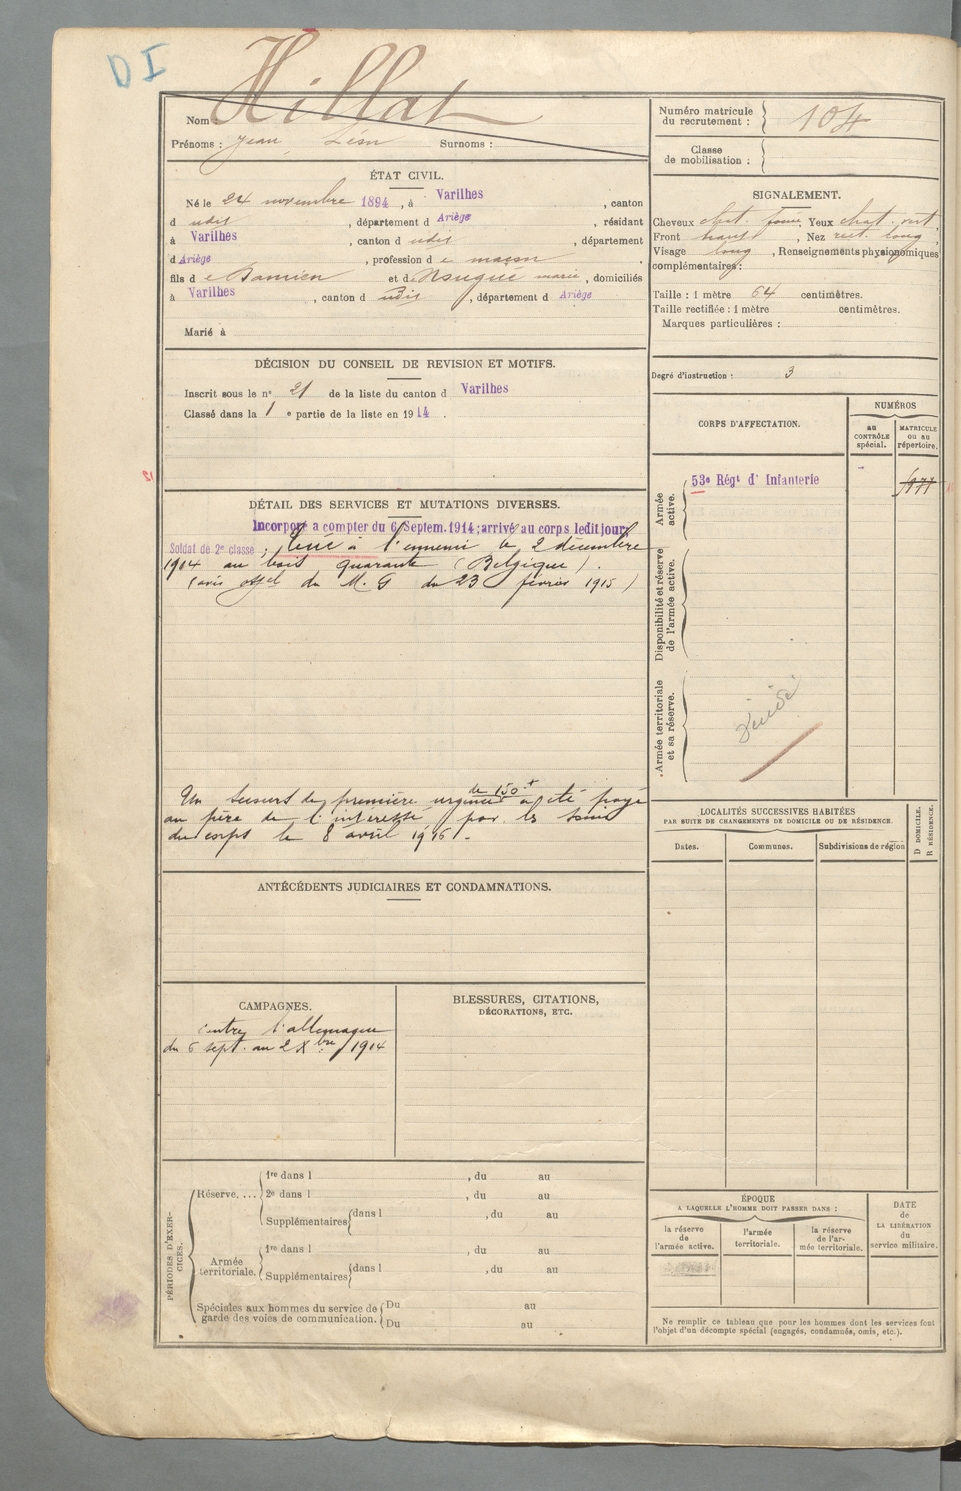 DI
Nom : Hillat
Prénoms : Jean Léon Surnoms :
Numéro matricule
du recrutement : 104
Classe
de mobilisation :
ÉTAT CIVIL.
Né le 24 novembre 1894, à Varilhes, canton
d udit, département d Ariège, résidant
à Varilhes, canton d udit, département
d Ariège, profession d e maçon,
fils d e Damien et d e Rouquié marie, domiciliés
à Varilhes, canton d udit, département d Ariège
Marié à
SIGNALEMENT.
Cheveux chat. foncé, Yeux chat. vert,
Front haut, Nez rect. long,
Visage long, Renseignements physionomiques
complémentaires :
Taille : 1 mètre 64 centimètres.
Taille rectifiée : 1 mètre centimètres.
Marques particulières :
Degré d'instruction : 3
DÉCISION DU CONSEIL DE REVISION ET MOTIFS.
Inscrit sous le n° 21 de la liste du canton d Varilhes
Classé dans la 1 e partie de la liste en 1914.
DÉTAIL DES SERVICES ET MUTATIONS DIVERSES.
Incorporé a compter du 6 Septem. 1914; arrivé au corps ledit jour;
Soldat de 2e classe; tué à l'ennemi le 2 décembre
1914 au bois quarante (Belgique).
(avis offel du M. G du 23 février 1915)
Un secours de première urgence de 150 f a été payé
au père de l'interessé par les soins
du corps le 8 avril
CORPS D'AFFECTATION.
NUMÉROS
au
CONTRÔLE
spécial.
MATRICULE
ou au
répertoire.
Armée
active.
53e Régt d'Infanterie
Disponibilité et réserve
de l'armée active.
Armée territoriale
et sa réserve.
LOCALITÉS SUCCESSIVES HABITÉES
PAR SUITE DE CHANGEMENTS DE DOMICILE OU DE RÉSIDENCE.
Dates. Communes. Subdivisions de région
D DOMICILE.
R RÉSIDENCE.
ANTÉCÉDENTS JUDICIAIRES ET CONDAMNATIONS.
CAMPAGNES.
Contre l'allemagne
du 6 sept. au 2 Xbre 1914
BLESSURES, CITATIONS,
DÉCORATIONS, ETC.
PÉRIODES D'EXER-
CICES.
Réserve....
1re dans l , du au
2e dans l , du au
Supplémentaires dans l , du au
Armée
territoriale.
1re dans l , du au
Supplémentaires dans l , du au
Spéciales aux hommes du service de
garde des voies de communication.
Du au
Du au
ÉPOQUE
A LAQUELLE L'HOMME DOIT PASSER DANS :
la réserve
de
l'armée active.
l'armée
territoriale.
la réserve
de l'ar-
mée territoriale.
DATE
de
LA LIBÉRATION
du
service militaire.
Ne remplir ce tableau que pour les hommes dont les services font
l'objet d'un décompte spécial (engagés, condamnés, omis, etc.).